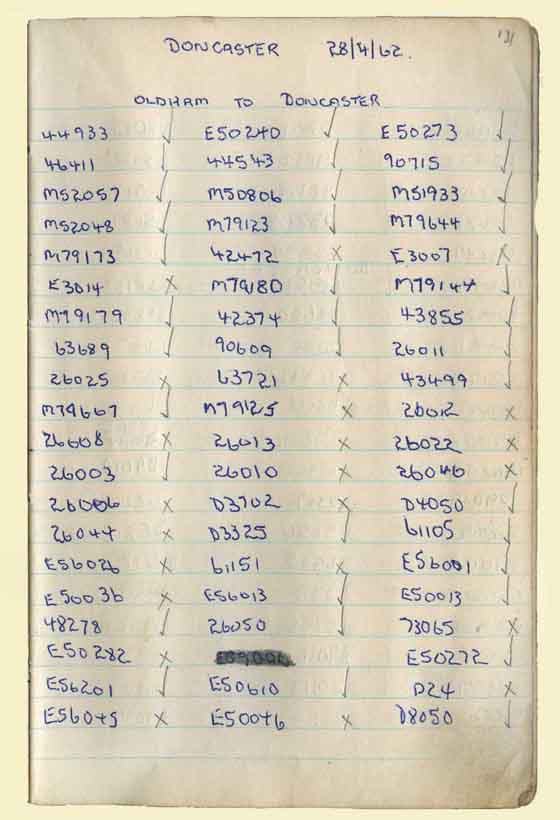 131
DONCASTER 28/4/62.
OLDHAM TO DONCASTER
44933 ✓ E50240 ✓ E50273 ✓
46411 ✓ 44543 ✓ 90715 ✓
M52057 ✓ M50806 ✓ M51933 ✓
M52048 ✓ M79123 ✓ M79644 ✓
M79173 ✓ 42472 x E3007 x
E3014 x M79180 ✓ M79144 ✓
M79179 ✓ 42374 ✓ 43855 ✓
63689 ✓ 90609 ✓ 26011 ✓
26025 x 63721 x 43499 ✓
M79667 ✓ M79125 x 26012 x
26008 x 26013 x 26022 x
26003 ✓ 26010 x 26046 x
26006 x D3702 x D4050 ✓
26044 x D3325 ✓ 61105 ✓
E56026 x 61151 x E56001 ✓
E50036 x E56013 ✓ E50013 ✓
48278 ✓ 26050 ✓ 73065 x
E50282 x E50272 ✓
E56201 ✓ E50610 ✓ D24 x
E56045 x E50046 x D8050 ✓